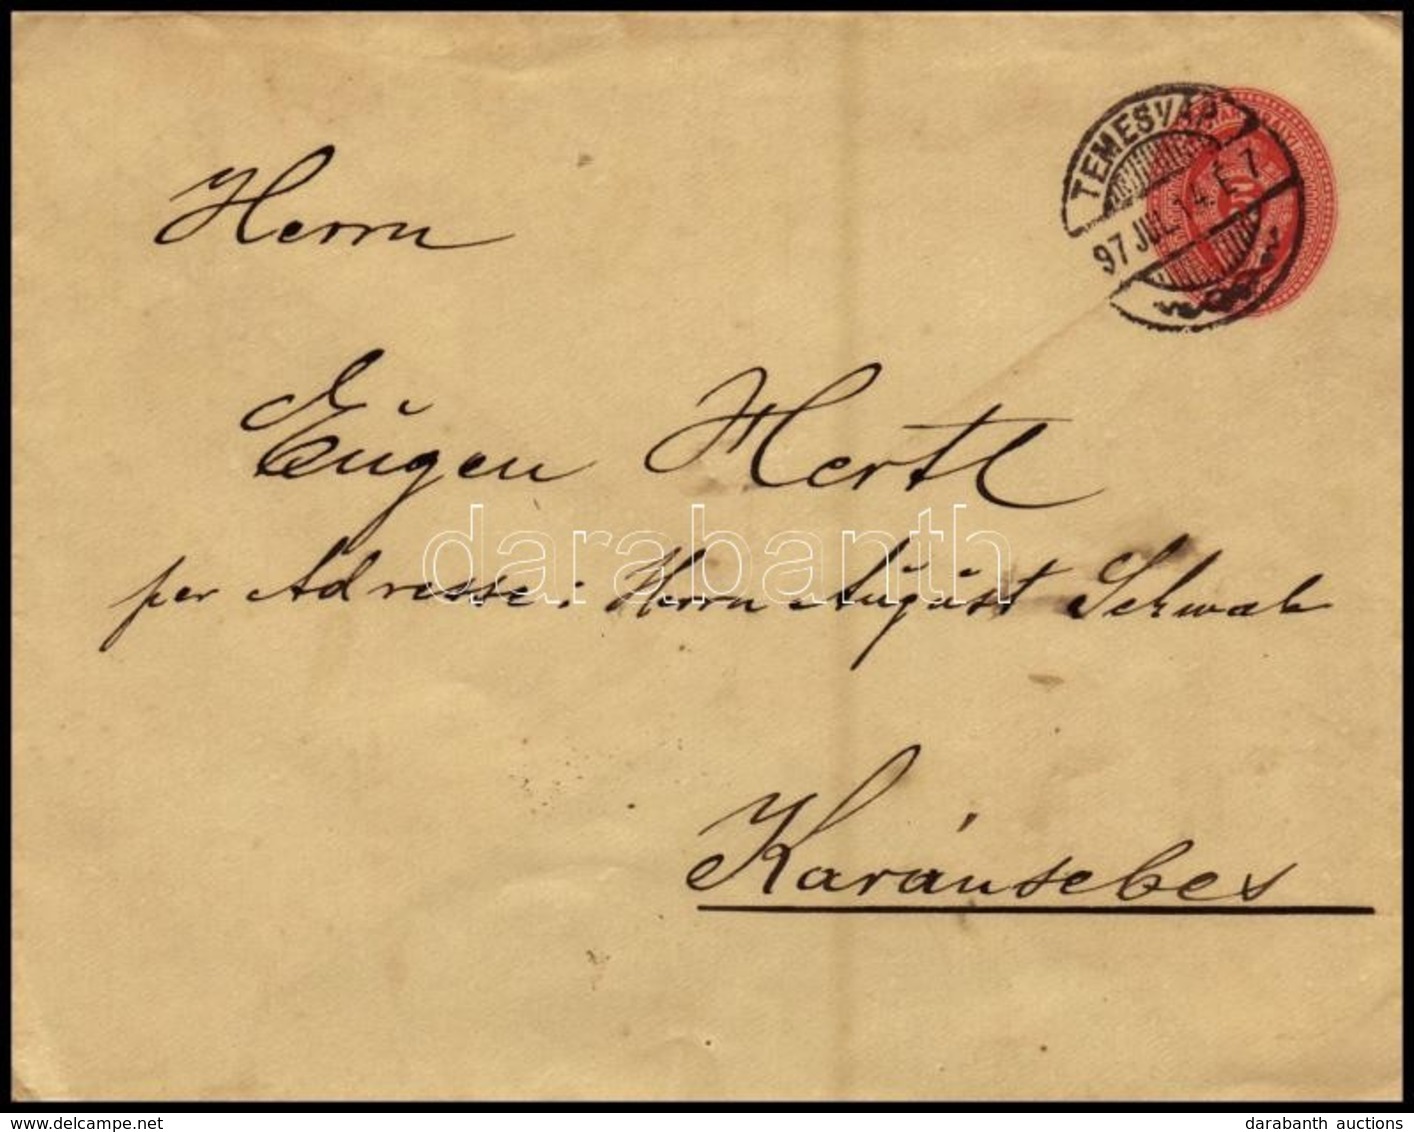 TEMESVÁR
97 JUL. 14. E 7
Herrn
Eugen Hertl
darabanth
per Adresse: Herrn August Schwab
Karánsebes
www.delcampe.net
darabanth auctions